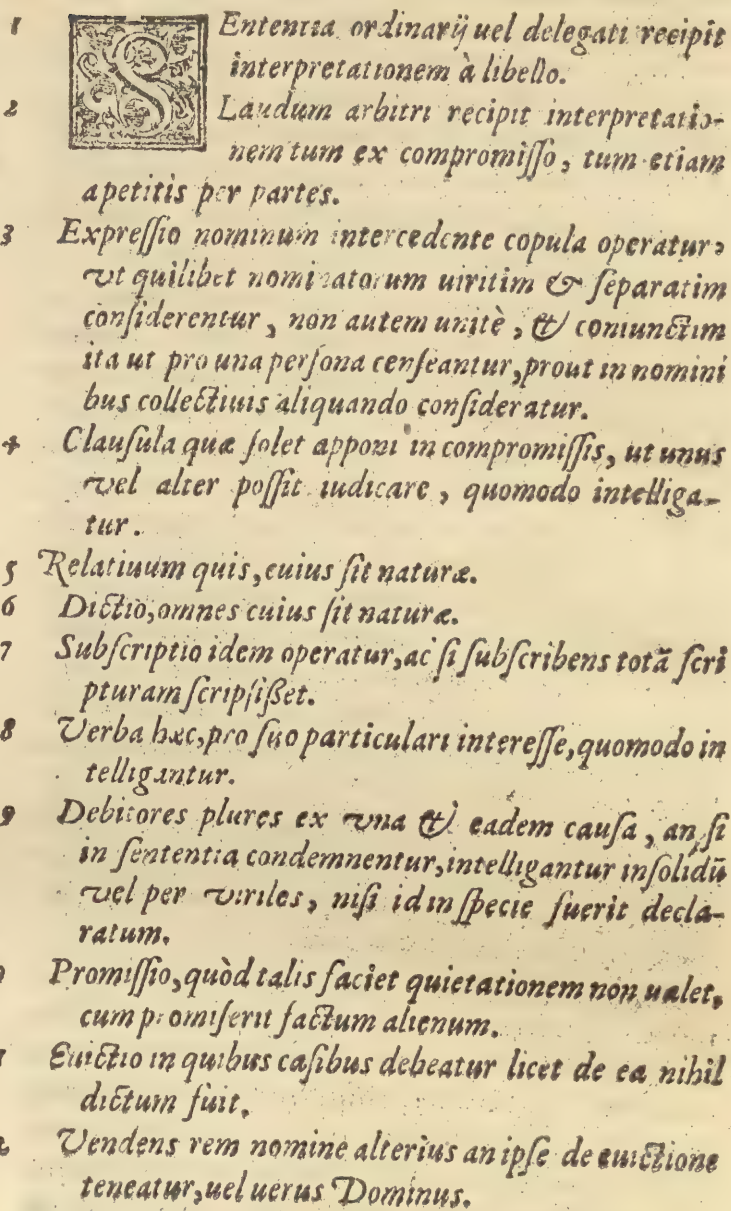 1 SEntentia ordinarij uel delegati recipit
interpretationem à libello.
2 Laudum arbitri recipit interpretatio-
nem tum ex compromiſſo, tum etiam
apetitis per partes.
3 Expreſſio nominum intercedente copula operatur,
vt quilibet nominatorum uiritim & ſeparatim
conſiderentur, non autem unitè, & coniunctim
ita ut pro una perſona cenſeantur, prout in nomini
bus collectiuis aliquando conſideratur.
4 Clauſula quæ ſolet apponi in compromiſſis, ut unus
vel alter poſſit iudicare, quomodo intelliga-
tur.
5 Relatiuum quis, cuius ſit naturæ.
6 Dictio, omnes cuius ſit naturæ.
7 Subſcriptio idem operatur, ac ſi ſubſcribens totã ſcri
pturam ſcripſißet.
8 Verba hæc, pro ſuo particulari intereſſe, quomodo in
telligantur.
9 Debitores plures ex vna & eadem cauſa, an, ſi
in ſententia condemnentur, intelligantur inſolidũ
vel per viriles, niſi id in ſpecie fuerit decla-
ratum.
Promiſſio, quòd talis faciet quietationem non ualet,
cum promiſerit factum alienum.
Euictio in quibus caſibus debeatur licet de ea nihil
dictum fuit.
Vendens rem nomine alterius an ipſe de euictione
teneatur, uel uerus Dominus.